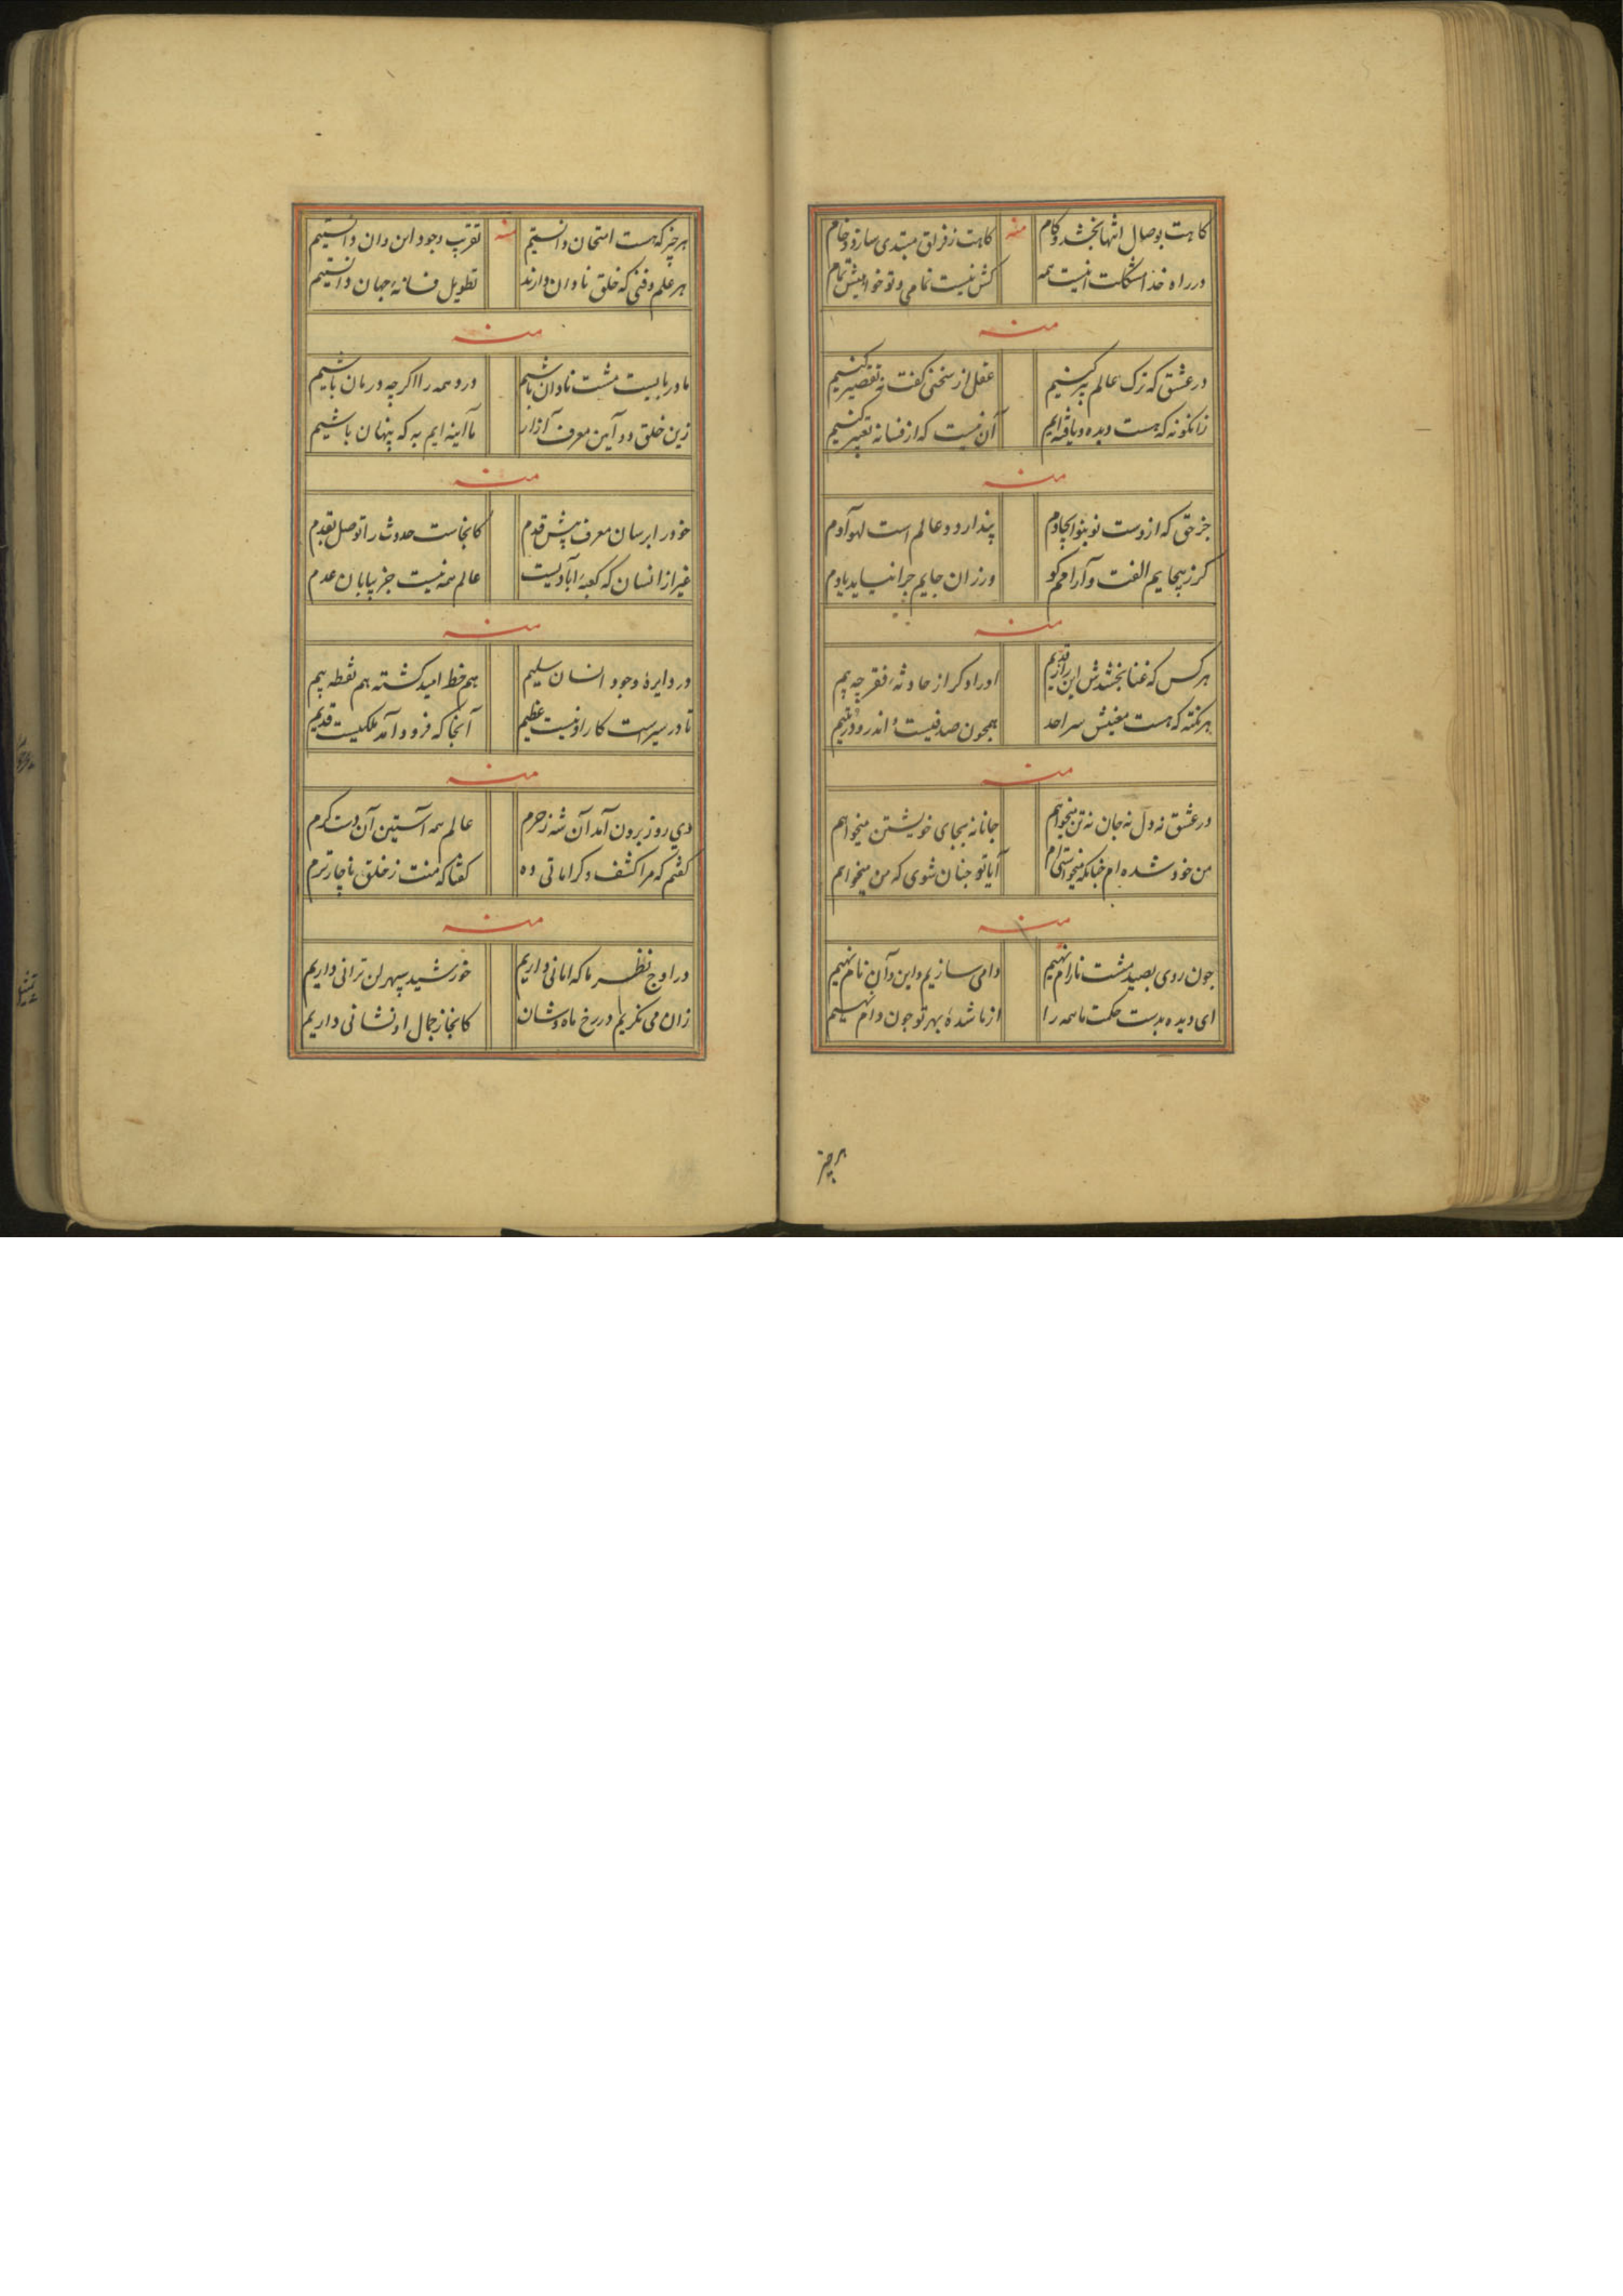 کاهت بوصال انتها بخشد و کام منه کاهت ز فراق مبتدی سازد و خام
در راه خدا مشکلت اینست همه کش نیست تمامی و تو خواهیش تمام
منه
در عشق که ترک عالم پیر کنیم عقل ار سخنی گفت نه تقصیر کنیم
زانگونه که هست دیده و یافته ایم آن نیست که از فسانه تعبیر کنیم
منه
جز حق که ازوست نو بنو ایجادم پندار دو عالم است لهو آدم
گر ز هیچایم الفت و آرامم کو ور زان جایم چرا نیاید یادم
منه
هر کس که غنا بخشدش این راز قدیم او را دگر از حادثهٔ فقر چه بیم
هر نکته که هست معنیش سر احد همچون صدفیست و اندرو در یتیم
منه
در عشق نه دل نه جان نه تن میخواهم جانانه بجای خویشتن میخواهم
من خود شده ام چنانکه میخواستی ام آیا تو چنان شوی که من میخواهم
منه
چون روی بصید مشت نارام نهیم دامی سازیم و این و آن نام نهیم
ای دیده بدست حکمت ما همه را از ما شدهٔ بهر تو چون دام نهیم
هر چیز
هر چیز که هست امتحان دانستیم منه تقریب وجود این و آن دانستیم
هر علم و فنی که خلق نادان دارند تطویل فسانهٔ جهان دانستیم
منه
ما در بابیست مشت نادان باشیم درد همه را اگر چه درمان باشیم
زین خلق دد آیین معرف آزار ما آینه ایم به که پنهان باشیم
منه
خود را برسان معرف پیش قدم کانجاست حدوث را توصل بقدم
غیر از انسان که کعبهٔ آبادیست عالم همه نیست جز بیابان عدم
منه
در دایرهٔ وجود انسان سلیم هم خط امید گشته هم نقطه بیم
تا در سیر است کار او نیست عظیم آنجا که فرود آمد ملکیست قدیم
منه
دی روز برون آمد آن شه ز حرم عالم همه آستین آن دست کرم
گفتم که مرا کشف و کراماتی ده گفتا که منت ز خلق ناچارترم
منه
در اوج نظر ما که امانی داریم خورشید سپهر لن ترانی داریم
زان می نگریم در رخ ماه وشان کانجا ز جمال او نشانی داریم